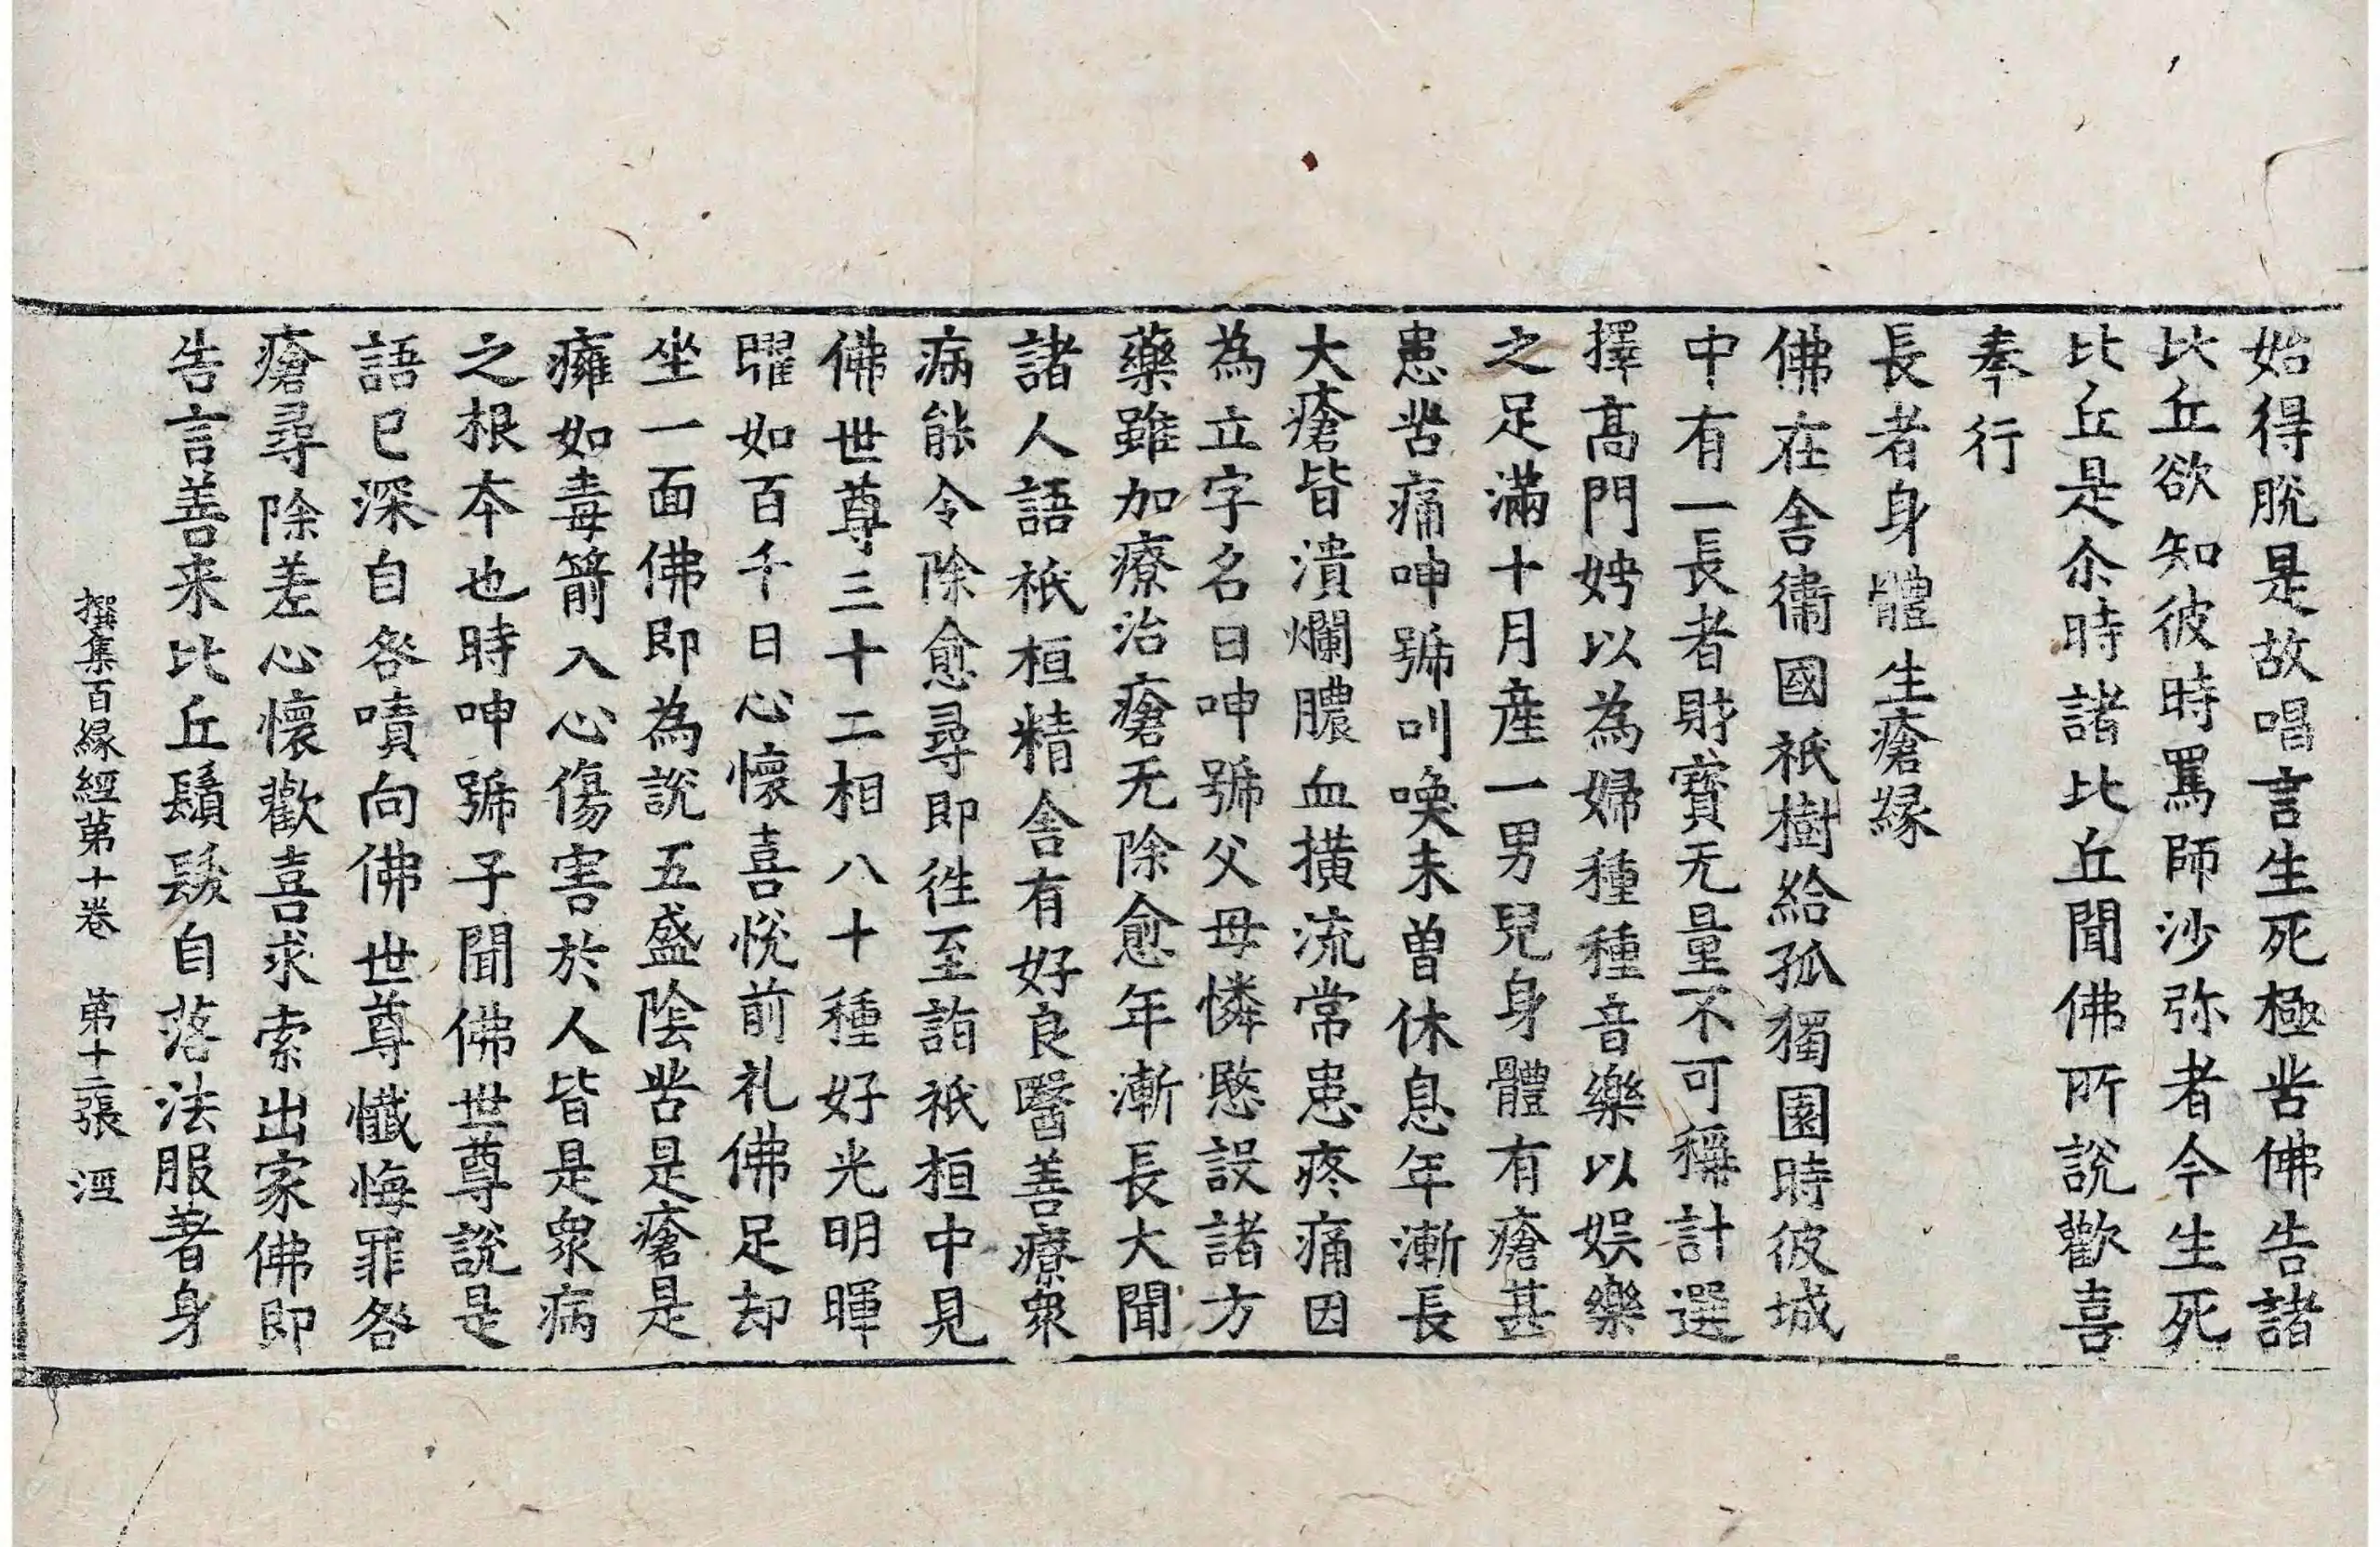 始得脫是故唱言生死極苦佛告諸
比丘欲知彼時罵師沙弥者今生死
比丘是尒時諸比丘聞佛所說歡喜
奉行
長者身體生瘡緣
佛在舍衞國祇樹給孤獨園時彼城
中有一長者財寶无量不可稱計選
擇高門娉以為婦種種音樂以娛樂
之足滿十月産一男兒身體有瘡甚
患苦痛呻號叫喚未曽休息年漸長
大瘡皆潰爛膿血橫流常患疼痛因
為立字名曰呻號父母憐愍設諸方
藥雖加療治瘡无除愈年漸長大聞
諸人語祇桓精舍有好良醫善療衆
病能令除愈尋即徃至詣祇桓中見
佛世尊三十二相八十種好光明暉
曜如百千日心懷喜悅前礼佛足却
坐一面佛即為說五盛陰苦是瘡是
癰如毒箭入心傷害於人皆是衆病
之根本也時呻號子聞佛世尊說是
語已深自咎嘖向佛世尊懺悔罪咎
瘡尋除差心懷歡喜求索出家佛即
告言善来比丘鬚髮自落法服著身
撰集百緣經第十卷　第十二張　涇